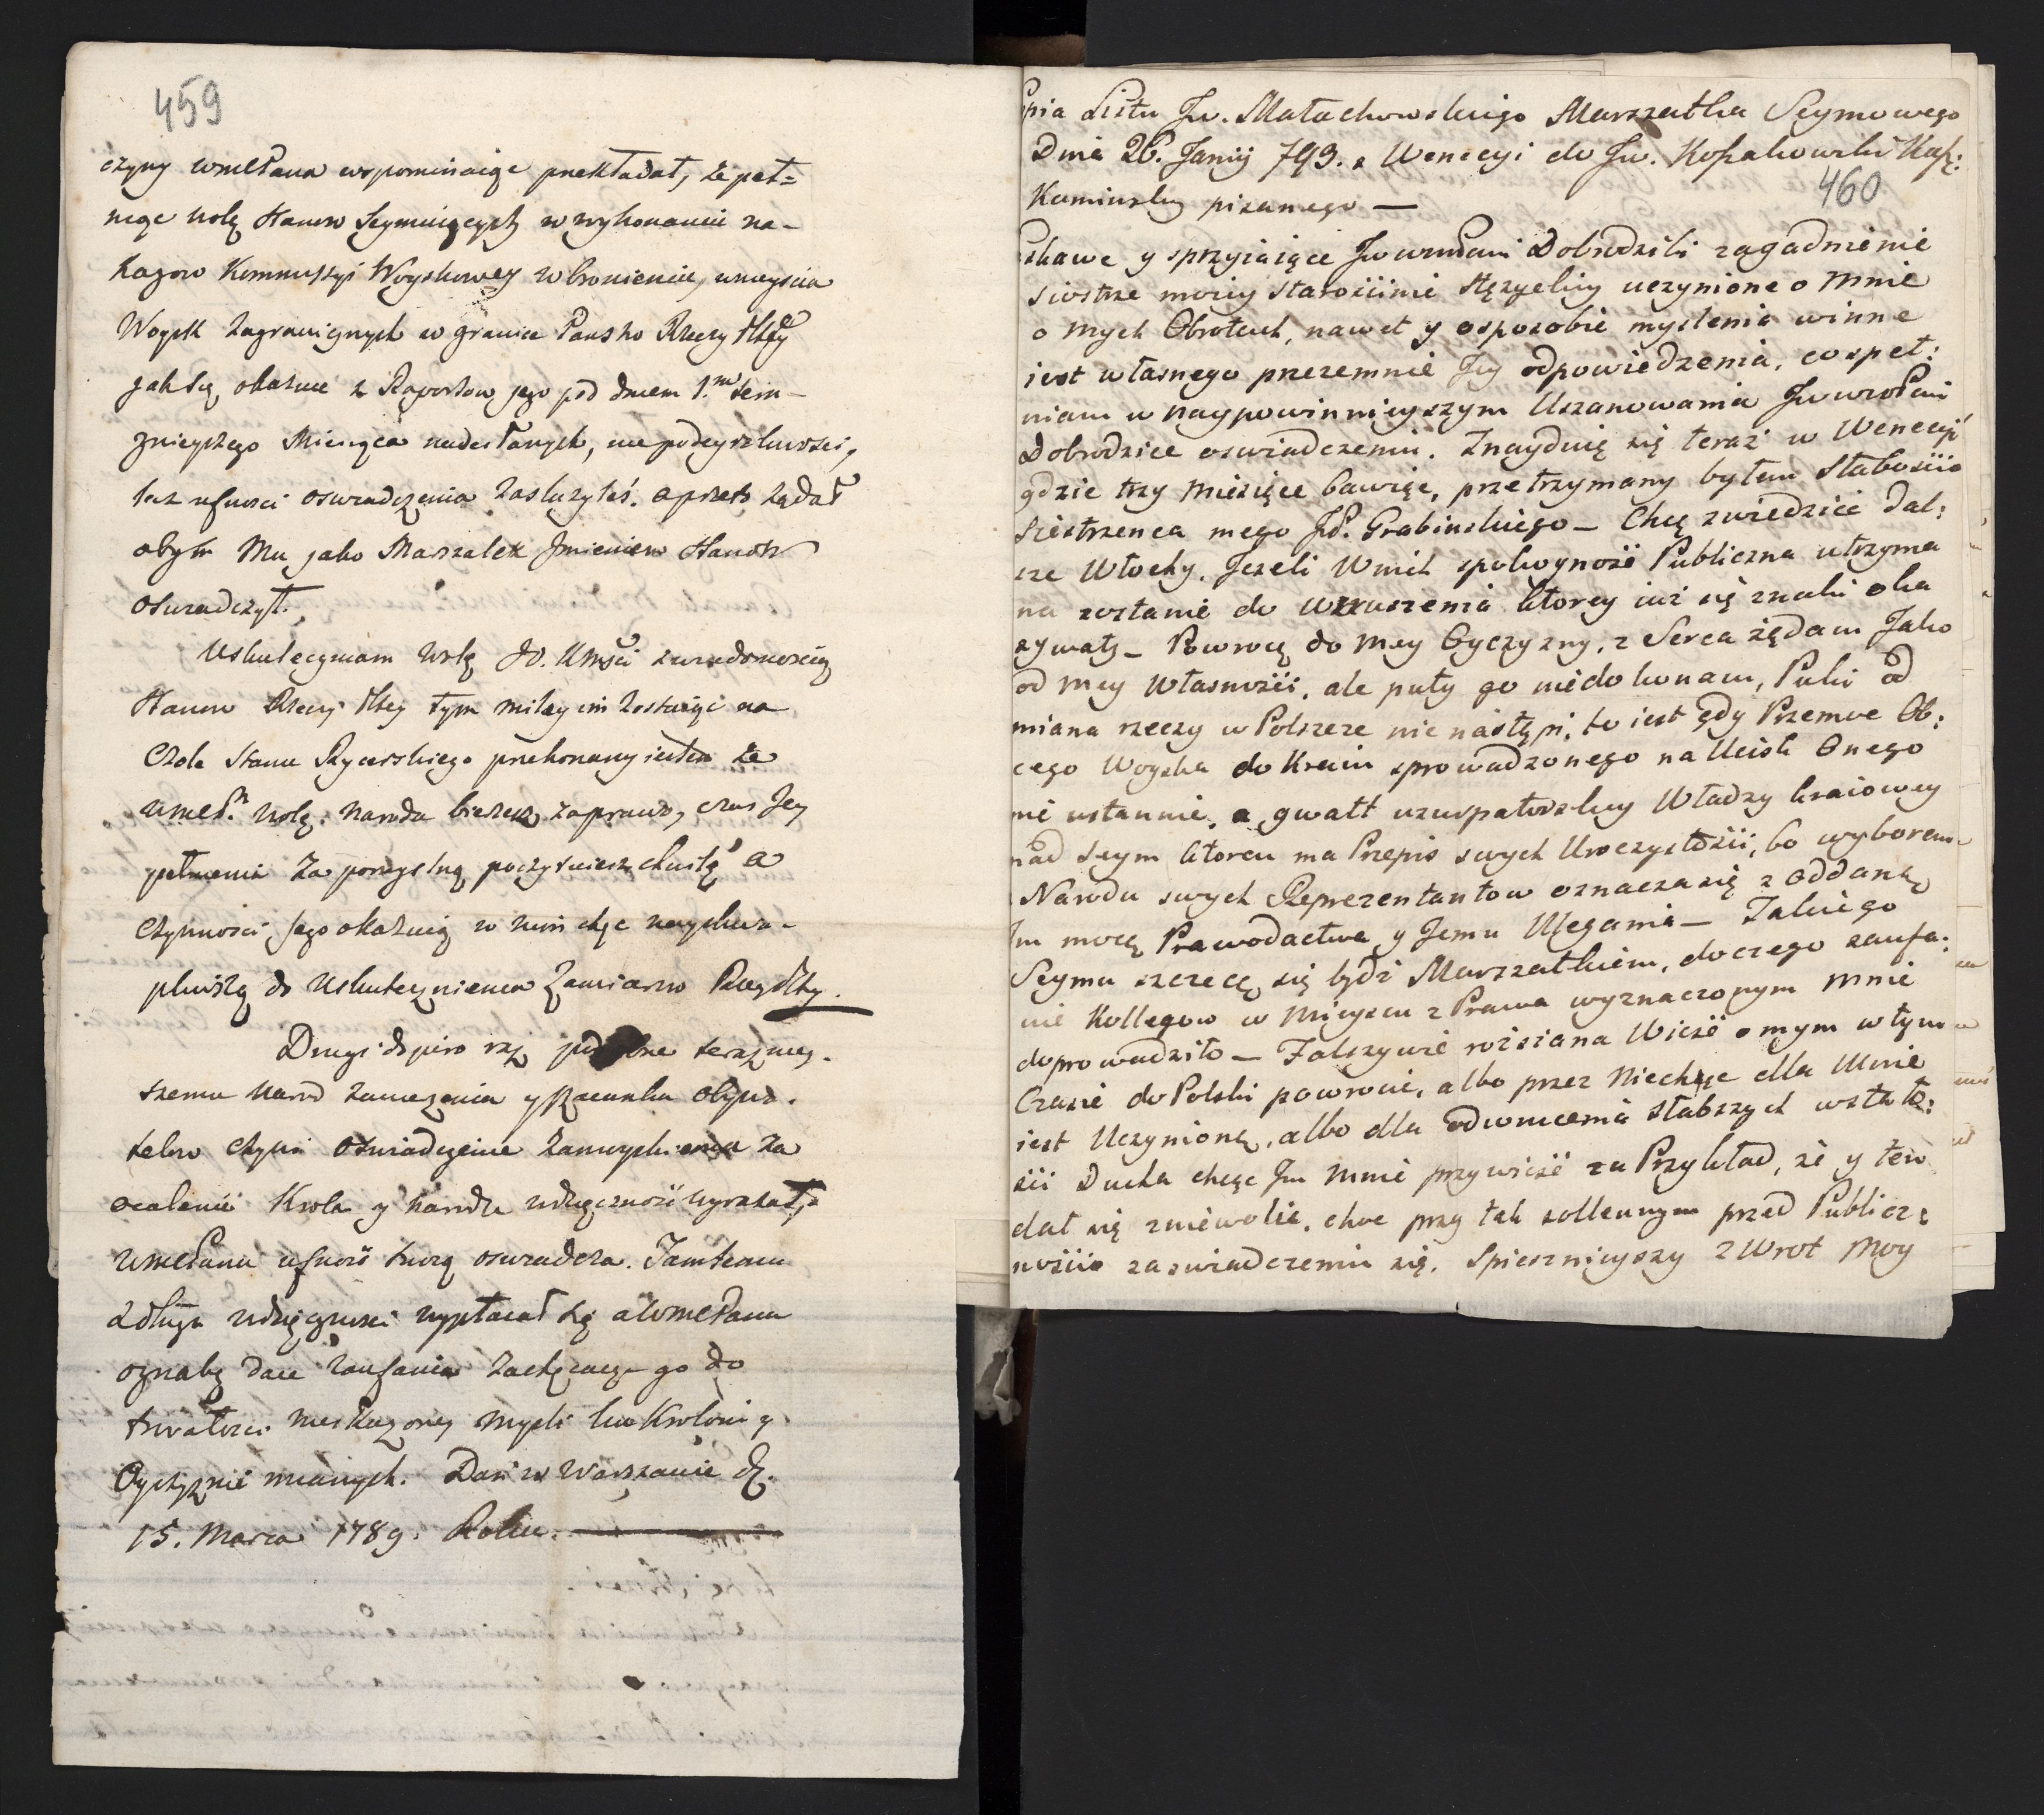 459
czyny WMCPana wspominaiąc przekładał, że peł=
niąc wolą Stanow Seymuiących w wykonaniu na-
kazow Kommissyi Woyskowey w bronieniu, wniyścia
Woysk zagranicznych w granice Państw Rzeczy Pltey
jak się okazuie z Raportow jego pod dniem 1.mo tera-
znieyszego Miesiąca nadesłanych, nie podeyrzliwości,
lecz ufności oswiadczenia zasłużyłeś. a przeto żądał
abym Mu jako Marszałek Jmieniem Stanow
oswiadczył.
Uskuteczniam wolę JO. KMści z wiadomością
Stanow Rzeczy Pltey tym miley im zostaiąc na
Czele Stanu Rycerskiego przekonany iestem że
WMCP. wolę Narodu bierzesz za prawo, czas Jey
pełnienia za pomyslną poczytuiesz chwilę a
Czynności Jego okazuią w nim chęć nayskwa-
pliwszą do uskutecznienia Zamiarow Rzeczy Pltey.
Drugi dopiero raz podobne terazniey-
szemu Narod zaufania y szacunku Obywa-
telow czyni Oswiadczenie Zamoyskiemu za
ocalenie Krola y Narodu wdzięczność wyrażał,
WMCPanu ufność swoią oswiadcza. Tamtemu
z długu wdzięczności wypłacał się a WMCPanu
oznakę daie zaufania zachęcaiąc go do
trwałości nieskażoney mysli ku Krolowi y
Oyczyznie mianych. Dan w Warszawie d.
15. Marca 1789. Roku.
pia Listu Jw. Małachowskiego Marszałka Seymowego
Dnia 26. Janii 793. z Wenecyi do Jw. Kossakowski Kasz:
460
Kamińsky pisanego —
skawe y sprzyiaiące Jww̃Pani Dobrodziki zagadnienie
siostrze moiey Starościnie Stęzyckiey uczynione o mnie
o mych Obrotach, nawet y o sposobie myslenia winne
iest własnego przezemnie Jey odpowiedzenia, co speł:
niam w naypowinnieyszym Uszanowania Jww̃Pani
Dobrodzice oswiadczeniu. Znayduię się teraz w Wenecyi
gdzie trzy miesiące bawiąc, przetrzymany byłem Słabością
siestrzenca mego JP. Grabinskiego — Chcę zwiedzić dal:
sze Włochy, Jezeli w nich spokoynosć Publiczna utrzyma
na zostanie do wzruszenia ktorey iuż się znaki oka
zywały — Powrocę do mey Oyczyzny, z Serca żądam Jako
od mey Własności, ale puty go niedokonam, Puki od
miana rzeczy w Polszcze nie nastąpi, to iest gdy Przemoc Ob:
cego Woyska do Kraiu sprowadzonego na Ucisk Onego
nie ustannie, a gwałt uzurpatorskiey Władzy kraiowey
nad seym ktoren ma Przepis swych Uroczystości, bo wyborem
Narodu swych Reprezentantow oznacza się z oddaną
Jm mocą Prawodactwa y Jemu Ulegania — Takiego
Seymu szczecę się bydź Marszałkiem, do czego zaufa:
nie Kollegow w mieyscu z Prawa wyznaczonym mnie
doprowadziło — Fałszywie rozsiana Wieść o mym w tym
Czasie do Polski powrocie, albo przez niechęć dla Mnie
iest Uczyniona, albo dla odwrucenia słabszych w stało:
ści Ducha chcąc Jm mnie przywieść za Przykład, że y ten
dał się zniewolić, choc przy tak sollennym przed Publicz:
nością zaswiadczeniu się. Spiesznieyszy zWrot moy